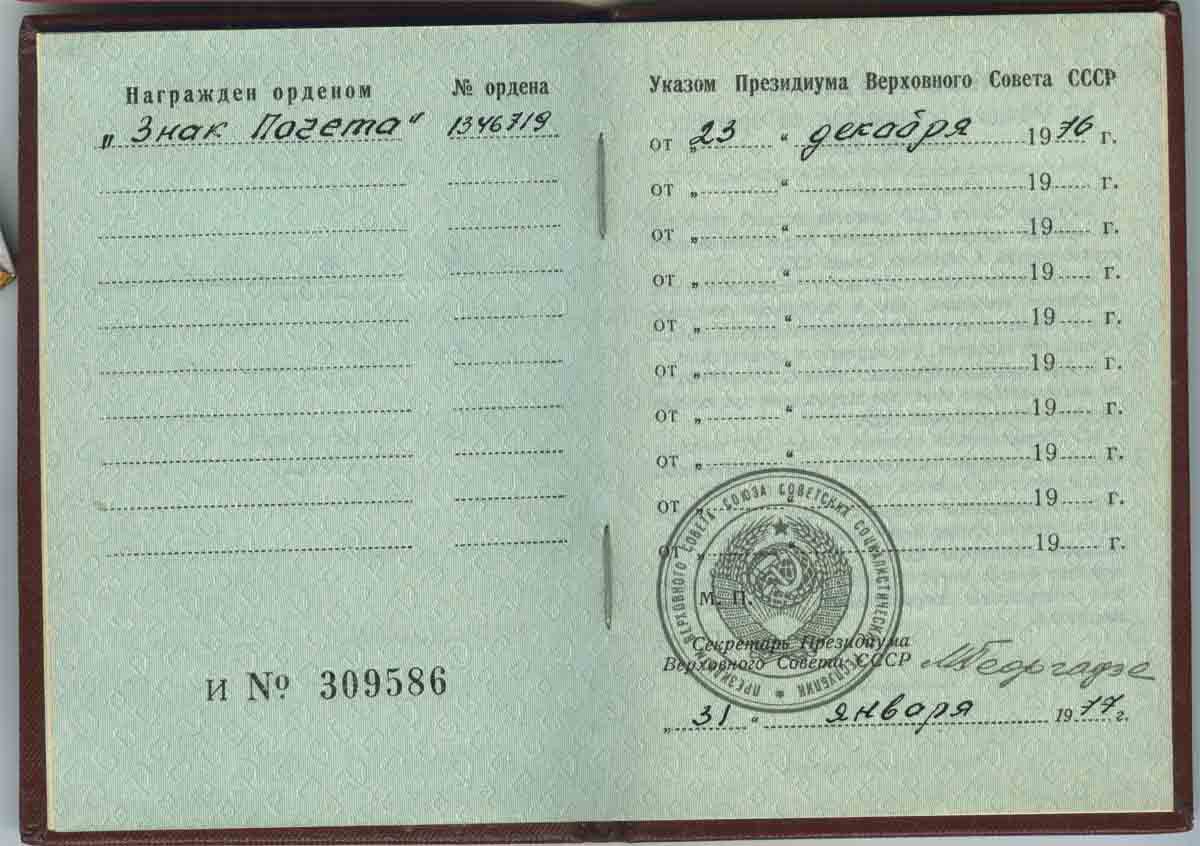 Награжден орденом № ордена
„Знак Почета“ 1346719
И № 309586
Указом Президиума Верховного Совета СССР
от „23“ декабря 1976 г.
от „ “ 19 г.
от „ “ 19 г.
от „ “ 19 г.
от „ “ 19 г.
от „ “ 19 г.
от „ “ 19 г.
от „ “ 19 г.
от „ “ 19 г.
от „ 19 г.
М. П.
ПРЕЗИДИУМ ВЕРХОВНОГО СОВЕТА СОЮЗА СОВЕТСКИХ СОЦИАЛИСТИЧЕСКИХ РЕСПУБЛИК
Секретарь Президиума
Верховного Совета СССР МГеоргадзе
„31“ января 1977 г.